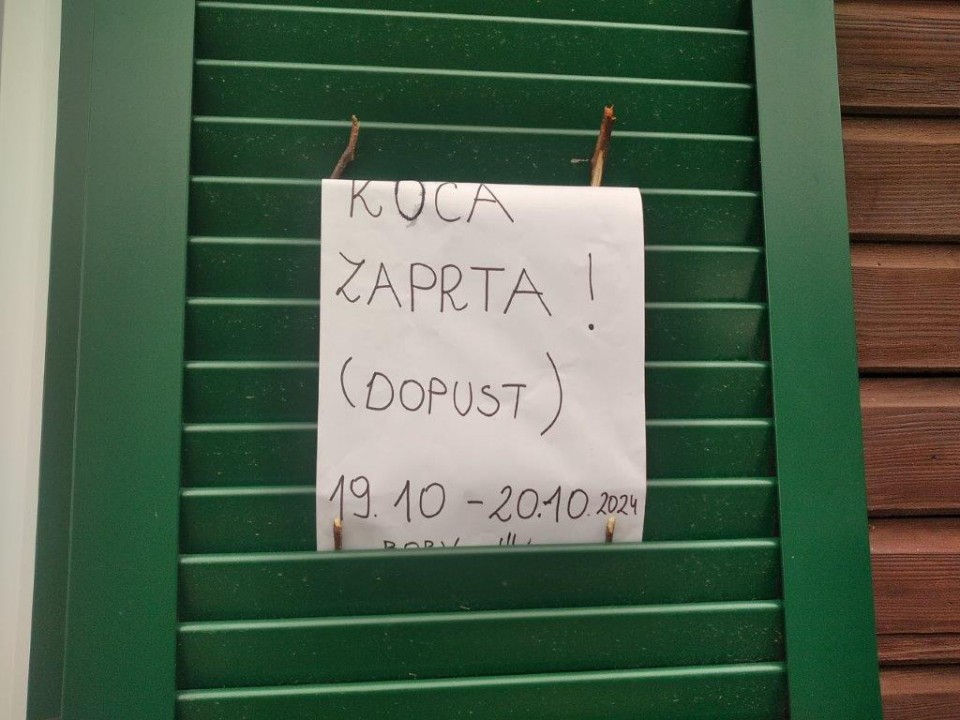 KOČA
ZAPRTA!
(DOPUST)
19.10 - 20.10.2024